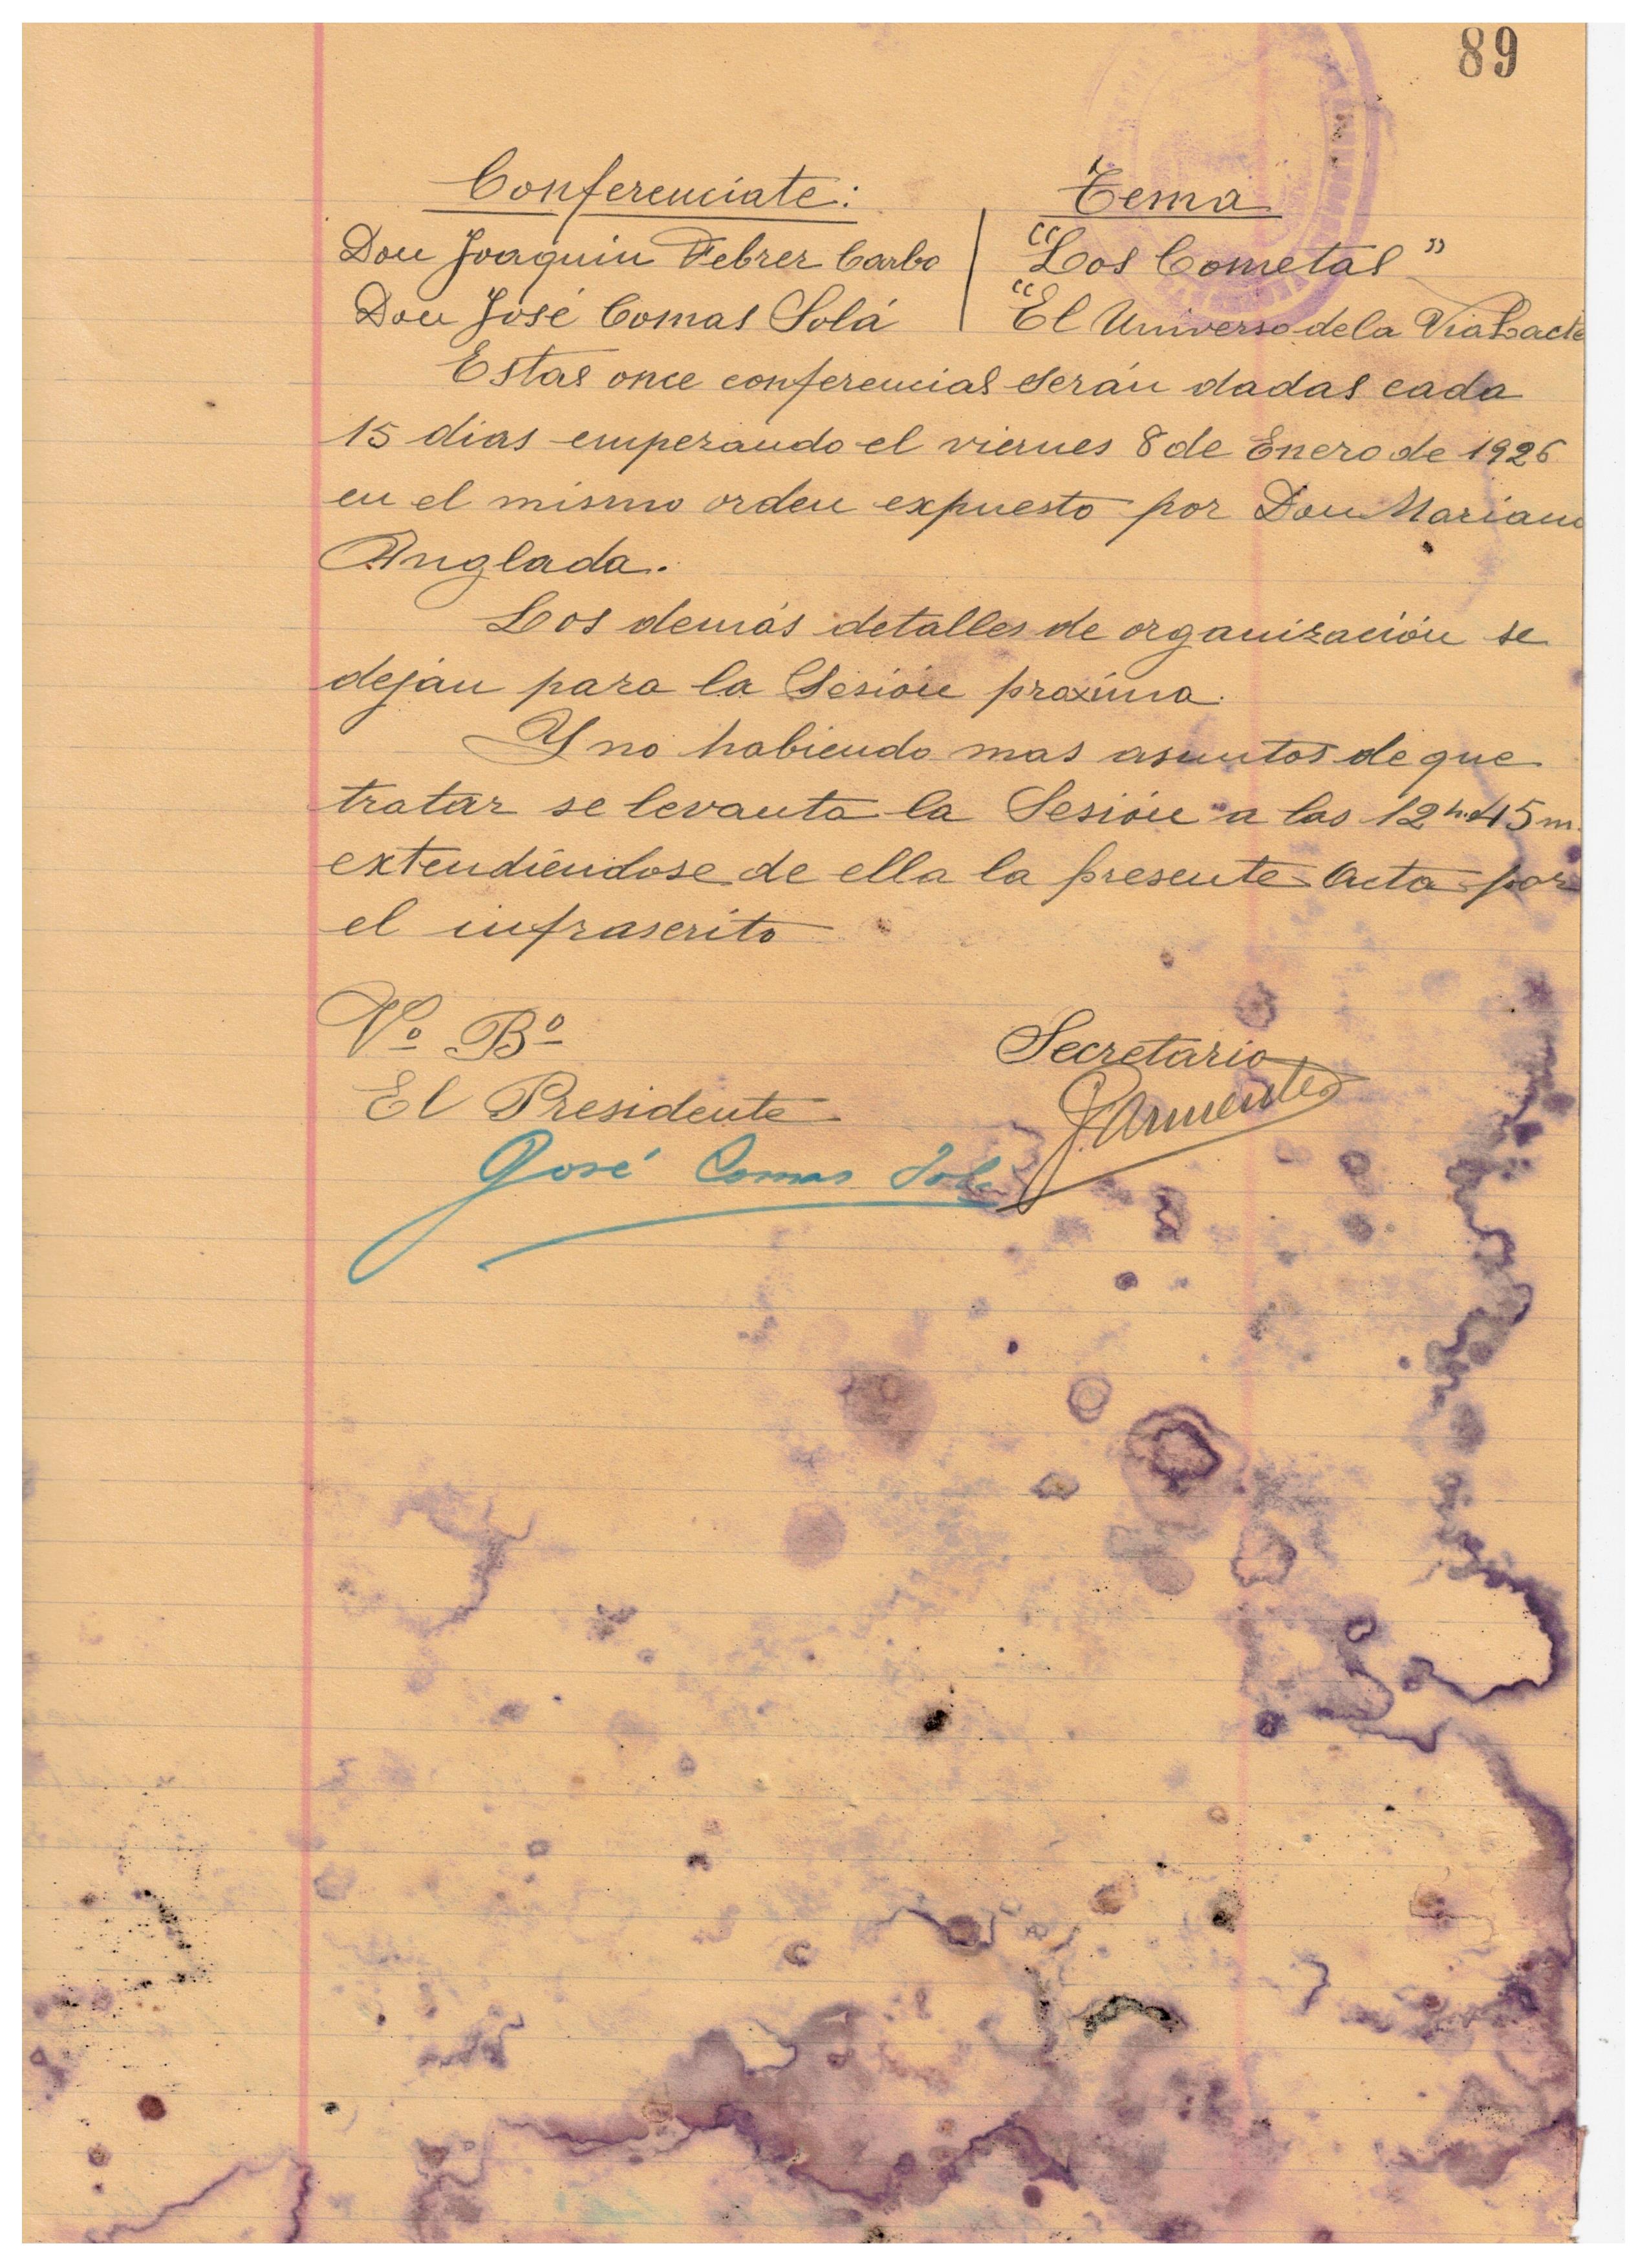 89
Conferenciate: Tema
Don Joaquin Febrer Carbo | "Los Cometas"
Don José Comas Solá | "El Universo de la Via Lacte
Estas once conferencias serán dadas cada
15 dias empezando el viernes 8 de Enero de 1926
en el mismo orden expuesto por Don Mariano
Anglada.
Los demás detalles de organización se
dejan para la Sesión proxima.
Y no habiendo mas asuntos de que
tratar se levanta la Sesión a las 12 h. 45 m.
extendiéndose de ella la presente Acta por
el infrascrito
Vº Bº
Secretario
El Presidente
J. Armenter
José Comas Solá